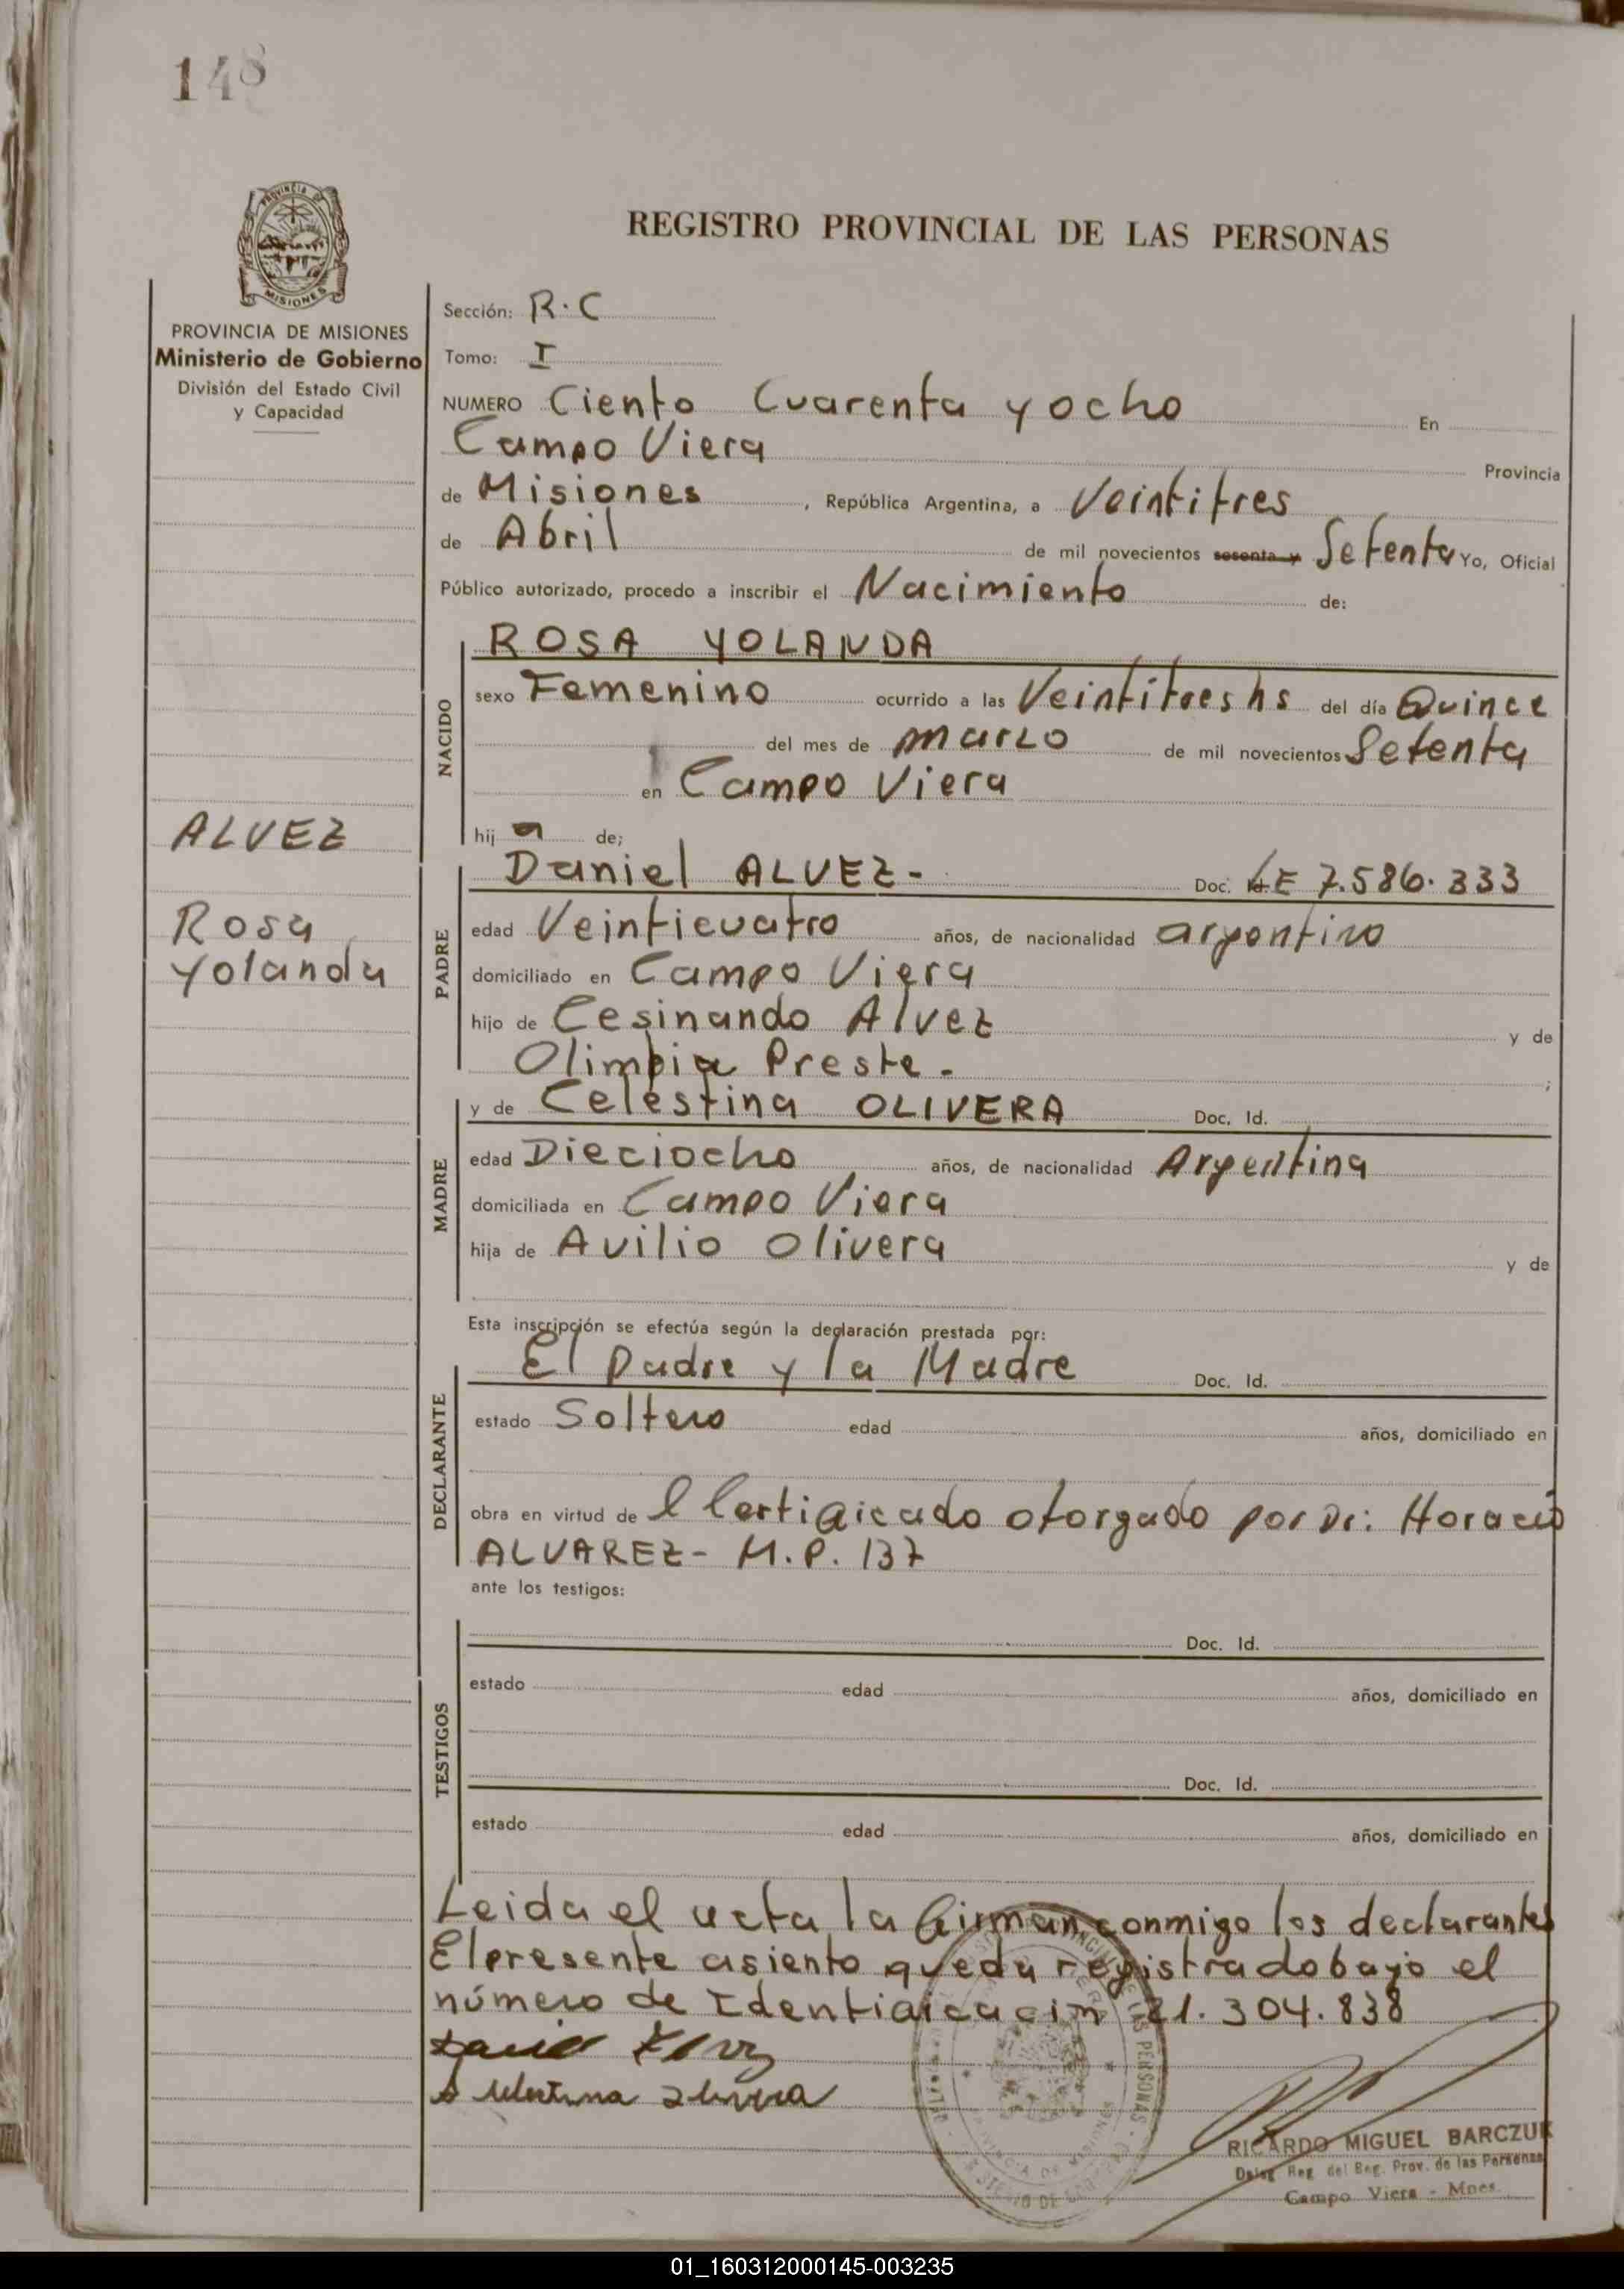 148
PROVINCIA DE MISIONES
REGISTRO PROVINCIAL DE LAS PERSONAS
PROVINCIA DE MISIONES
Ministerio de Gobierno
División del Estado Civil
y Capacidad
Sección: R.C
Tomo: I
NUMERO Ciento Cuarenta y ocho En
Campo Viera Provincia
de Misiones, República Argentina, a Veintitres
de Abril de mil novecientos sesenta y Setenta Yo, Oficial
Público autorizado, procedo a inscribir el Nacimiento de:
NACIDO
ROSA YOLANDA
sexo Femenino ocurrido a las Veintitres hs del día Quince
del mes de marzo de mil novecientos Setenta
en Campo Viera
hij a de;
ALVEZ
Rosa
Yolanda
PADRE
Daniel ALVEZ- Doc. Id. LE 7.586.333
edad Veinticuatro años, de nacionalidad argentino
domiciliado en Campo Viera
hijo de Cesinando Alvez y de
Olimpia Preste. ;
MADRE
y de Celestina OLIVERA Doc. Id.
edad Dieciocho años, de nacionalidad Argentina
domiciliada en Campo Viera
hija de Avilio Olivera y de
Esta inscripción se efectúa según la declaración prestada por:
DECLARANTE
El Padre y la Madre Doc. Id.
estado Soltero edad años, domiciliado en
obra en virtud de l Certificado otorgado por Dr: Horacio
ALVAREZ- M.P. 137
ante los testigos:
TESTIGOS
Doc. Id.
estado edad años, domiciliado en
Doc. Id.
estado edad años, domiciliado en
Leida el acta la firman conmigo los declarantes
El presente asiento queda registrado bajo el
número de Identificacion 21.304.838
RICARDO MIGUEL BARCZUK
Deleg Reg. del Reg. Prov. de las Personas
Campo Viera - Mnes.
01_160312000145-003235